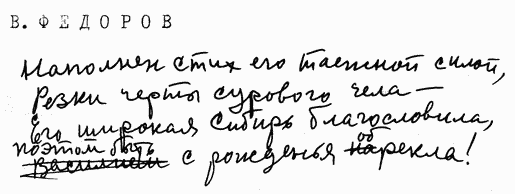 В. ФЕДОРОВ
Наполнен стих его таежной силой,
Резки черты сурового чела —
Его широкая Сибирь благословила,
поэтом быть
Василием с рожденья нарекла!
об